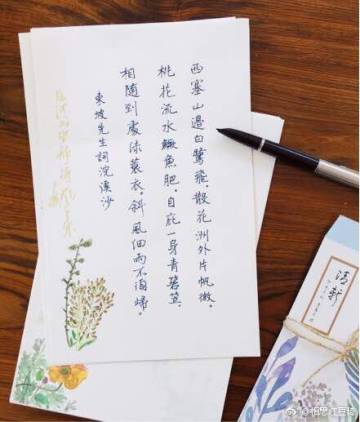 西塞山邊白鷺飛。散花洲外片帆微。
桃花流水鱖魚肥。自庇一身青篛笠。
相隨到處綠蓑衣。斜風細雨不須歸。
東坡先生詞浣溪沙
清新